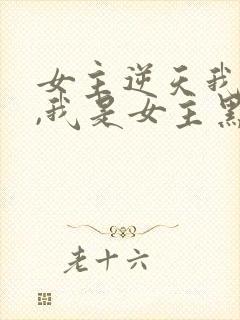 女主逆天我
,我是女主黑
老十六